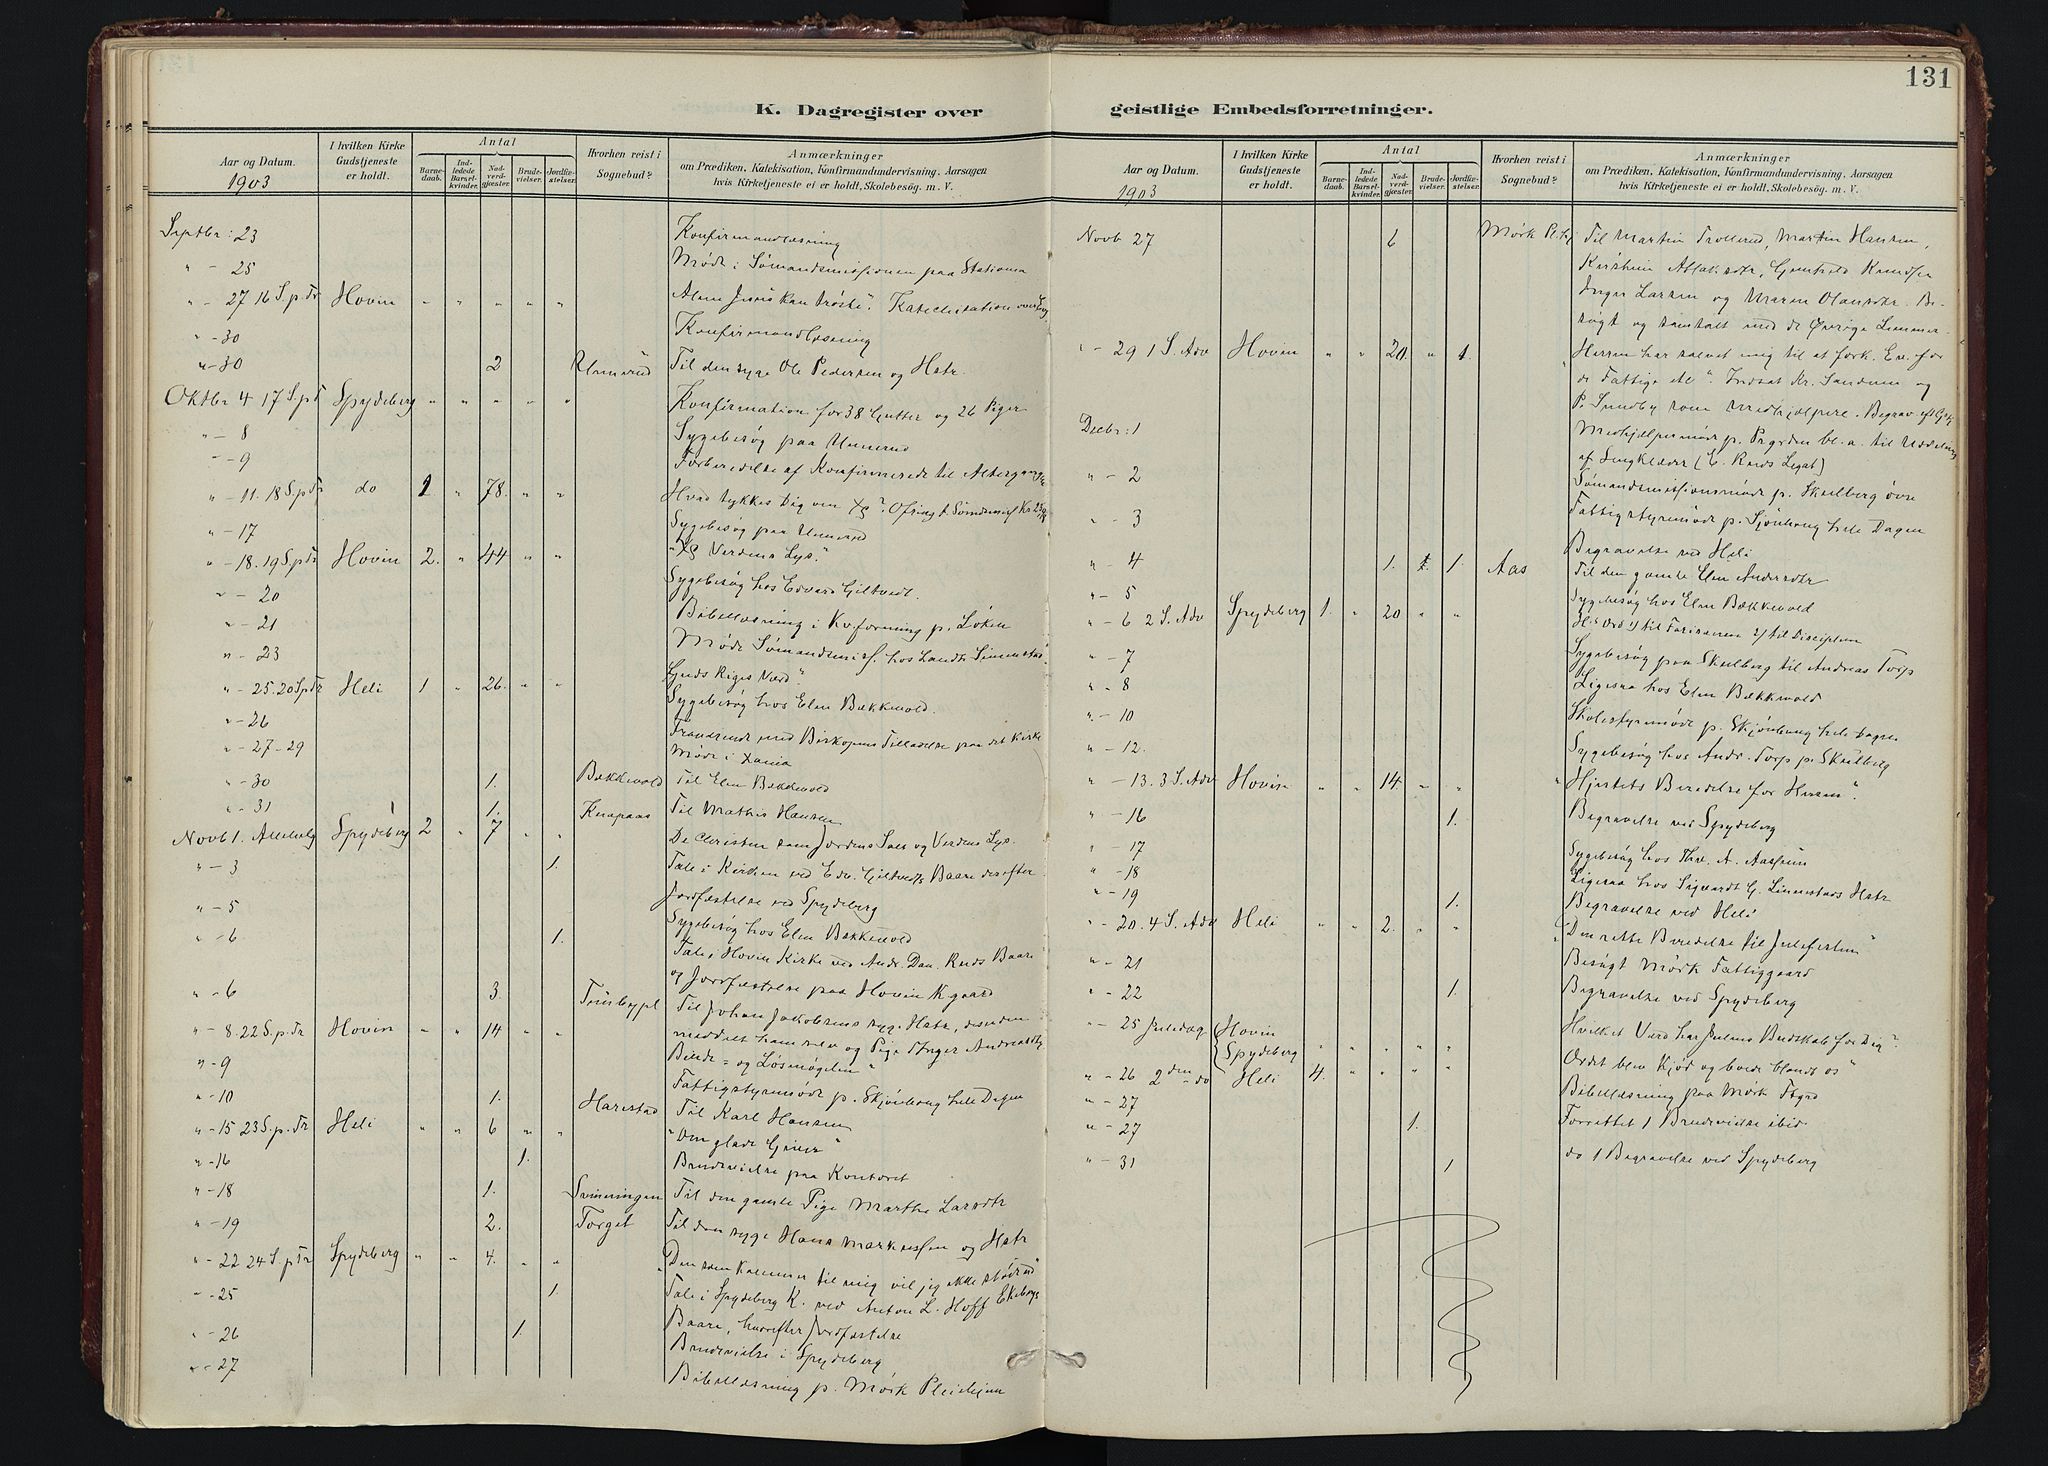 131
K. Dagregister over geistlige Embedsforretninger.
Aar og Datum. 1903
I hvilken Kirke Gudstjeneste er holdt.
Antal
Barnedaab.
Indledede Barselkvinder.
Nadverdgjæster.
Brudevielser.
Jordfæstelser.
Hvorhen reist i Sognebud?
Anmærkninger
om Prædiken, Katekisation, Konfirmandundervisning, Aarsagen
hvis Kirketjeneste ei er holdt, Skolebesög. m. V.
Septbr: 23 Konfirmandlæsning
" - 25 Möde i Sömandsmissionen paa Stationen
" - 27 16 S.p.Tr Hovin " " " " " Alene Jesus kan tröste". Katechisation over
" - 30 Konfirmandlæsning
" - 30 2 Til den syge Ole Pedersen og Hstr.
Oktbr 4 17 S.p.T Spydeberg " " " " " Konfirmation for 38 Gutter og 26 Piger
" - 8 Sygebesög paa Unnerud
" - 9 Forberedelse af Konfirmerede til Altergang
" - 11. 18 S.p.Tr do 1 " 78. " " Hvad tykkes Dig om Xs? Ofring t. Sömdsmis
" - 17 Sygebesög paa Unnerud
" - 18. 19 S.p.Tr Hovin 2. " 44 " " "Xs Verdens Lys."
" - 20 Sygebesög hos Edvard Giltvedt.
" - 21 Bibellæsning i Kv.forening p. Löken
" - 23 Möde Sömandsmis. hos Landh.
" - 25. 20 S.p.Tr Heli 1 " 26. " " Guds Riges Værd"
" - 26 Sygebesög hos Elen Bækkevold.
" - 27-29 Fraværende med Biskopens Tilladelse paa det kirke
Möde i Xania
" - 30 1. Bækkevold Til Elen Bækkevold
" - 31 1. Knapaas Til Mathis Hansen
Novb 1. Allehelg Spydeberg 2 " 7 " " De Christne som Jordens Salt og Verdens Lys.
" - 3 1. Tale i Kirken ved Edv. Giltvedts Baare derefter
Jordfæstelse ved Spydeberg
" - 5 Sygebesög hos Elen Bækkevold
" - 6 1. Tale i Hovin Kirke ved Andr. Dan. Ruds Baare
og Jordfæstelse paa Hovin K.gaard
" - 6 3. Til Johan Jakobsens syge Hstr, desuden
" - 8. 22 S.p.Tr Hovin " " 14 " " meddelt ham selv og Pige Inger Andreasdtr
" - 9 Fattigstyremöde p. Skjönhaug hele Dagen
" - 10 1. Harestad Til Karl Hansen
" - 15 23 S.p.Tr Heli " " 6 " " "Om glade Givere"
" - 16 1. Brudevielse paa Kontoret
" - 18 1. Svinningen Til den gamle Pige Marthe Larsdtr
" - 19 2. Torget Til den syge Hans Markussen og Hstr
" - 22 24 S.p.Tr Spydeberg " " 4. " " "Den som kommer til mig vil jeg ikke stöde ud"
" - 25 1. Tale i Spydeberg K. ved Anton L. Hoff Ekebergs
Baare, hvorefter Jordfæstelse
" - 26 1. Brudevielse i Spydeberg
" - 27 Bibellæsning p. Mörk Pleiehjem
Aar og Datum. 1903
I hvilken Kirke Gudstjeneste er holdt.
Antal
Barnedaab.
Indledede Barselkvinder.
Nadverdgjæster.
Brudevielser.
Jordfæstelser.
Hvorhen reist i Sognebud?
Anmærkninger
om Prædiken, Katekisation, Konfirmandundervisning, Aarsagen
hvis Kirketjeneste ei er holdt, Skolebesög. m. V.
Novb 27 6 Mörk Pl.hj Til Martin Trollerud, Martin Hansen,
Kirstine Aslaksdtr, Gunhild Knudsen
Inger Larsen og Maren Olausdtr. Be-
sögt og samtalt med de övrige Lemmer
" - 29 1 S. Adv Hovin " " 20. " 1. "Herren har salvet mig til at fork. Ev. for
de Fattige etc". Indsat Kr. Sandum og
P. Sundby som Medhjælpere. Begrav.
Decbr: 1 Medhjælpermöde p. Prgrden bl.a. til Uddeling
af Sengklæder (E. Ruds Legat)
" - 2 Sömandsmissionsmöde p. Skulberg övre
" - 3 Fattigstyremöde p. Sjönhaug hele Dagen
Begravelse ved Heli
" - 4 1. 1. Aas Til den gamle Elen Andersdtr
" - 5 Sygebesög hos Elen Bækkevold
" - 6 2 S. Adv Spydeberg 1. " 20 " " Ord 1/ til Farisæerne 2/ til Disciplene
" - 7 Sygebesög paa Skulberg til Andreas Torp
" - 8 Ligesaa hos Elen Bækkevold
" - 10 Skolestyremöde p. Skjönhaug hele Dagen
" - 12. Sygebesög hos Andr. Torp p. Skulberg
" - 13. 3 S. Adv Hovin " " 14. " " "Hjertets Beredelse for Herren".
" - 16 1. Begravelse ved Spydeberg
" - 17 Sygebesög hos Thv. A. Aasheim
" - 18 Ligesaa hos Sigvardt G. Linnestads Hstr
" - 19 1. Begravelse ved Heli
" - 20. 4 S. Adv Heli " " 2. " " "Den rette Beredelse til Julefesten"
" - 21 Besögt Mörk Fattiggaard
" - 22 1. Begravelse ved Spydeberg
" - 25 Juledag Hovin
Spydeberg " " " " " Hvilket Værd har Julens Budskab for Dig?
" - 26 2den do Heli 4. " " " " Ordet blev Kjöd og boede blandt os"
" - 27 Bibellæsning paa Mörk Ftgrd
" - 27 1. Forrettet 1 Brudevielse ibid
" - 31 1 do 1 Begravelse ved Spydeberg